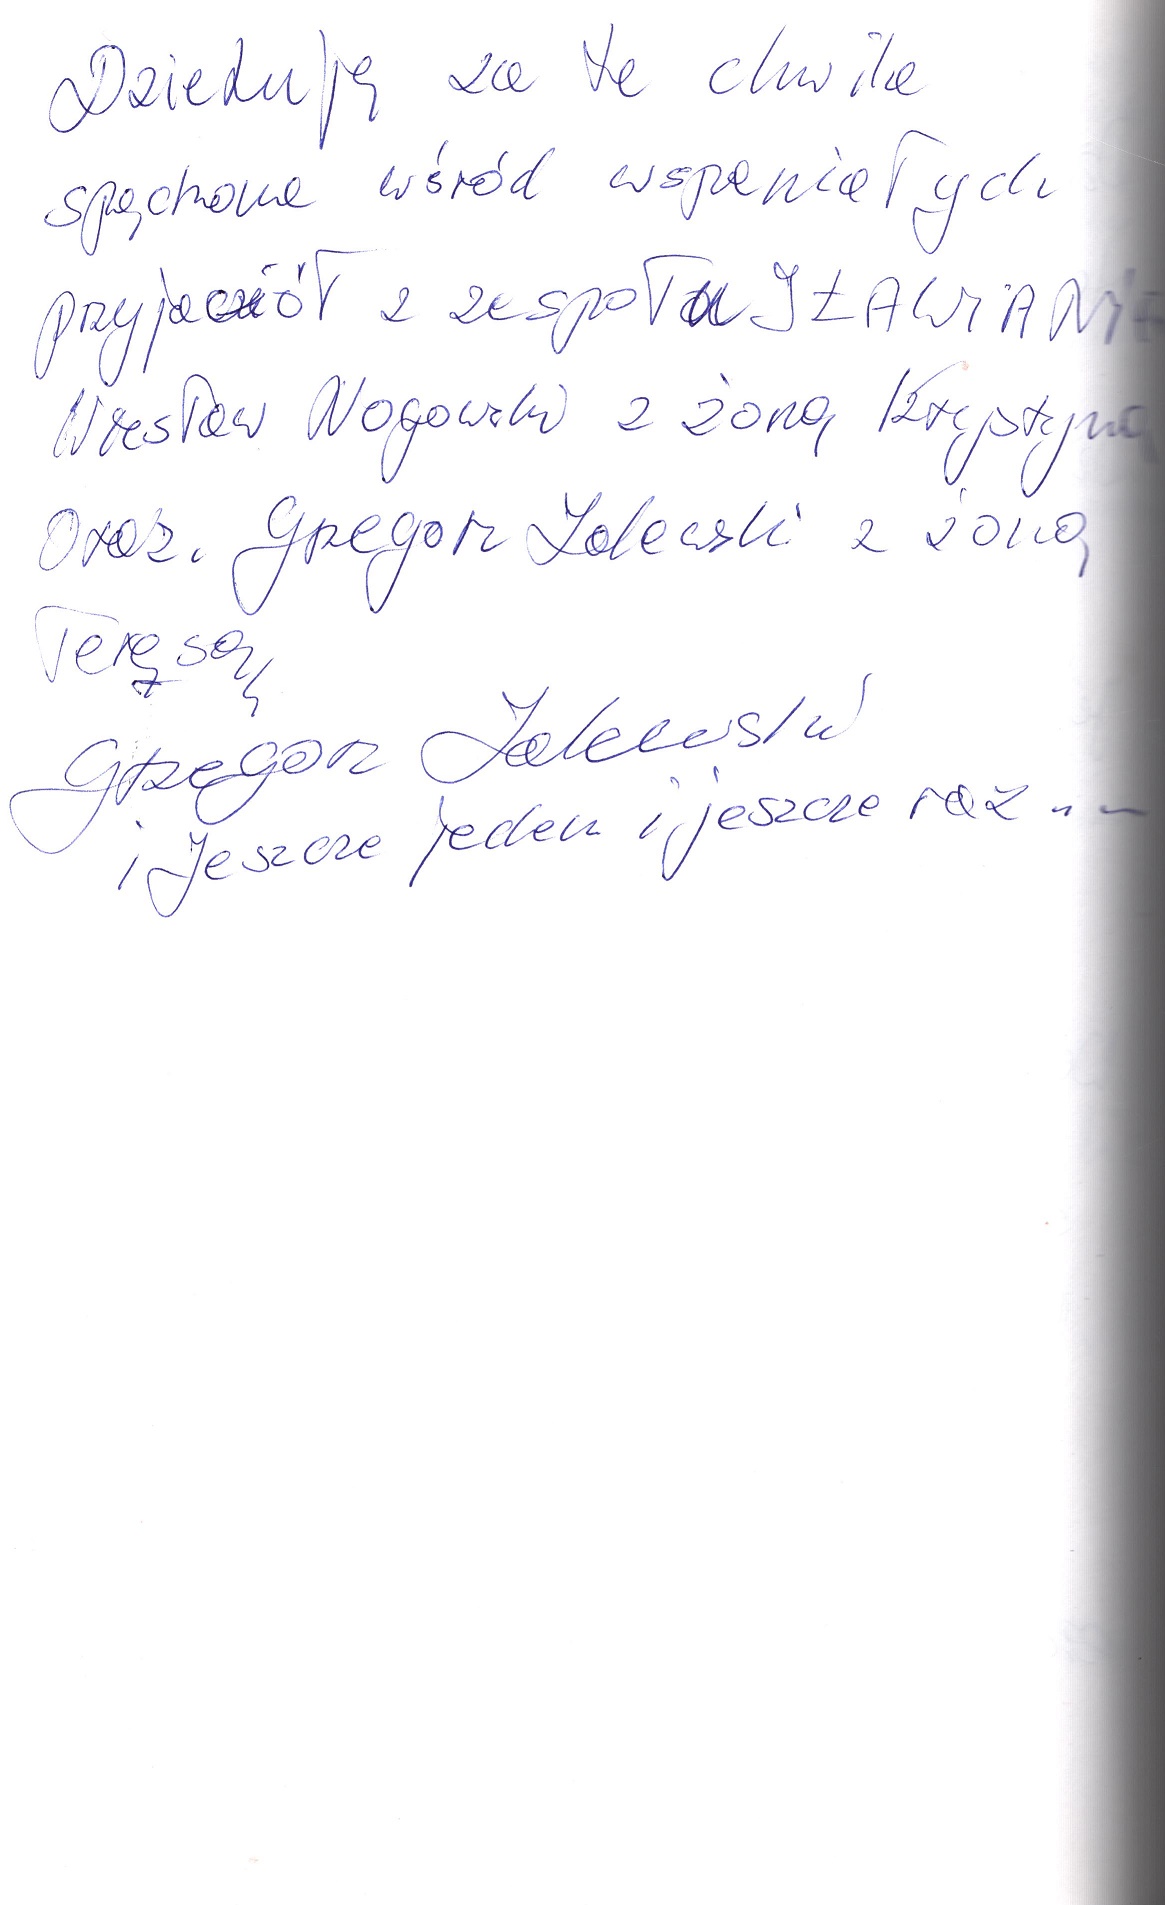 Dziękuję za te chwile
spędzone wśród wspaniałych
przyjaciół z zespołu IŁAWIANIE
Wiesław Nogowski z żoną Krystyną
Oraz. Grzegorz Zalewski z żoną
Teresą
Grzegorz Zalewski
i jeszcze jeden i jeszcze raz ...